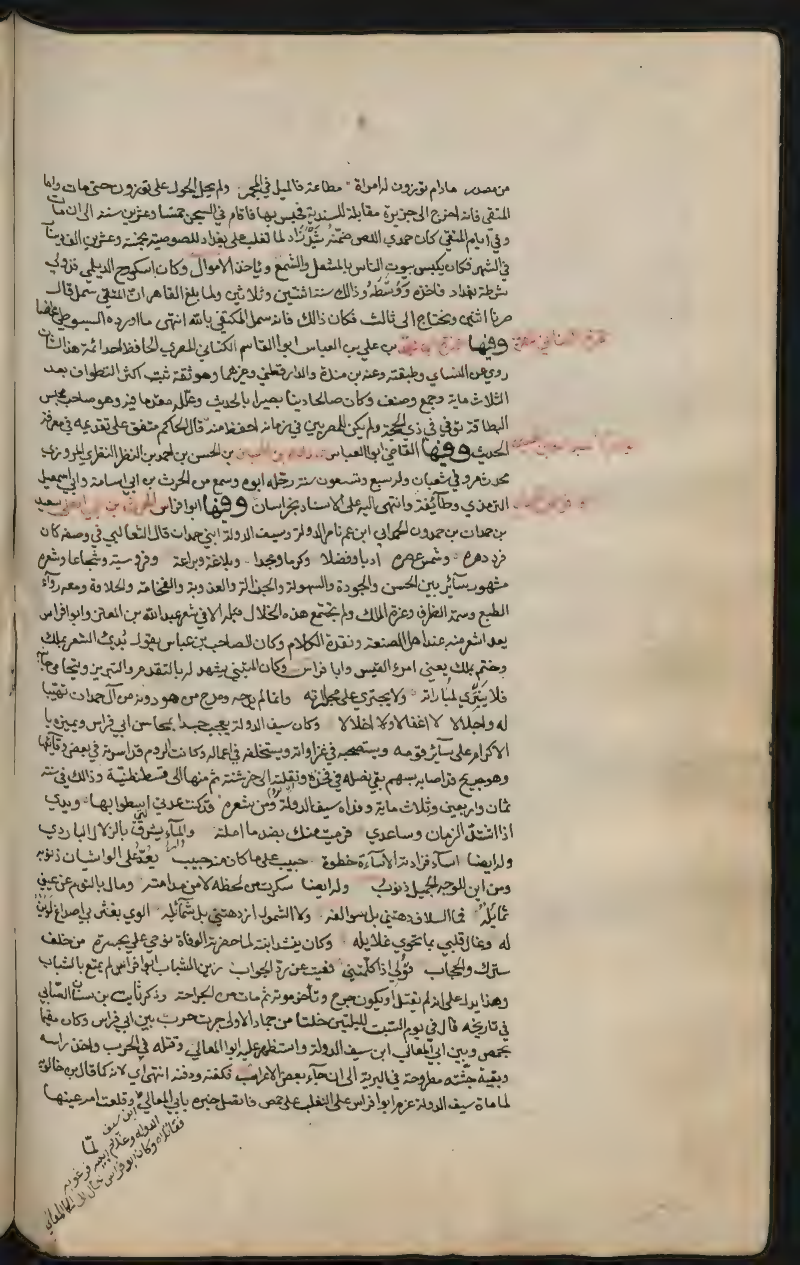 من مصدر مادام توزون لامراة مطاعة فالميل في المجمر ولم يحل الحول على توزون حتى مات واما
المتقي فانه اخرج الى جزيرة مقابلة للسندية فحبس بها فاقام في السجن خمسا وعشرين سنة الى ان مات
وفي ايام المتقي كان حمدي اللص ضمنه شيرزاد لما تغلب على بغداد اللصوصية بخمسة وعشرين الف دينار
في الشهر فكان يكبس بيوت الناس بالمشعل والشمع وياخذ الاموال وكان اسكورج الديلمي قد ولي
شرطة بغداد فاخذه ووسطه وذلك سنة اثنتين وثلاثين ولما بلغ القاهر ان المتقي سمل قال
صرنا اثنين ونحتاج الى ثالث فكان ذلك فانه سمل المكتفي بالله انتهى ما اورده السيوطي ملخصا
وفيها بن علي بن العباس ابو القاسم الكناني المصري الحافظ احد ائمة هذا الشان
روى عن النسائي وطبقته وعنه بن مندة والدارقطني وغيرهما وهو ثقة ثبت اكثر التطواف بعد
الثلاث ماية وجمع وصنف وكان صالحا دينا بصيرا بالحديث وعلله مقدما فيه وهو صاحب مجلس
البطاقة توفي في ذي الحجة ولم يكن للمصريين في زمانه احفظ منه قال الحاكم متفق على تقدمه في معرفة
الحديث وفيها القاضي ابو العباس بن الحسن بن احمد بن النضر النضري المروزي
محدث مرو في شعبان وله سبع وتسعون سنة رحله ابوه وسمع من الحرث بن ابي اسامة وابي اسمعيل
الترمذي وطائفة وانتهى اليه علو الاسناد بخراسان وفيها ابو فراس الحرث بن ابي العلي سعيد
بن حمدان بن حمدون الحمداني ابن عم ناصر الدولة وسيف الدولة ابني حمدان قال الثعالبي في وصفه كان
فرد دهره وشمس عصره ادبا وفضلا وكرما ومجدا وبلاغة وبراعة وفروسية وشجاعا وشعره
مشهور سائر بين الحسن والجودة والسهولة والجزالة والعذوبة والفخامة والحلاوة ومعه رواء
الطبع وسمة الظرف وعزة الملك ولم يجتمع هذه الخلال قبله الا في شعر عبد الله بن المعتز وابو فراس
يعد اشعر منه عند اهل الصنعة ونقدة الكلام وكان الصاحب بن عباس يقول بدئ الشعر بملك
وختم بملك يعني امرئ القيس وابا فراس وكان المتنبي يشهد له بالتقدم والتبريز ويتحامى جانبه
فلا ينبري لمباراته ولا يجتري على مجاراته وانما لم يمدحه ومدح من هو دونه من ال حمدان تهيبا
له واجلالا لا اغفالا ولا اخلالا وكان سيف الدولة يعجب جدا بمحاسن ابي فراس ويميزه با
الاكرام على سائر قومه ويستصحبه في غزاواته ويستخلفه في اعماله وكانت الروم قد اسرته في بعض وقائعها
وهو جريح قد اصابه سهم بقي نصله في فخذه ونقلته الى خرشنة ثم منها الى قسطنطنية وذلك في سنة
ثمان واربعين وثلاث ماية وفداه سيف الدولة ومن شعره قد كنت عدتي التي اسطو بها ويدي
اذا اشتد الزمان وساعدي فرميت منك بضد ما املته والماء يشرق بالزلال البارد ي
وله ايضا اساء فزادته الاساءة حظوة حبيب على ما كان منه حبيب يعد على الواشيان ذنوبه
ومن اين للوجه الجميل ذنوب وله ايضا سكرت من لحظه لا من مدامته ومال بالنوم عن عيني
تمايله فما السلاف دهتني بل سوالفه ولا الشمول ازدهتني بل شمائله الوى بعقلي اصداغ لوين
له وغال قلبي بما تحوي غلايله وكان ينشد ابنته لما حضرته الوفاة نوحي علي بحسرة من خلف
سترك والحجاب قولي اذا كلمتني فعييت عن رد الجواب زين الشباب ابو فراس لم يمتع بالشباب
وهذا يدل على انه لم يقتل او يكون جرح وتاخر موته ثم مات من الجراحة وذكر ثابت بن سنان الصابي
في تاريخه قال في يوم السبت لليلتين خلتا من جماد الاولى جرت حرب بين ابي فراس وكان مقيما
بحمص وبين ابي المعالي ابن سيف الدولة واستظهر عليه ابو المعالي وقتله في الحرب واخذ راسه
وبقية جثته مطروحة في البرية الى ان جاء بعض الاعراب فكفنه ودفنه انتهى اي لانه كما قال بن خالويه
لما مات سيف الدولة عزم ابو فراس على التغلب على حمص فاتصل خبره بابي المعالي وقلعت امه عينها
لما
ابن سيف
الدولة وغلام ابيه قرغويه
فقاتله وكان ابو فراس خال ابي المعالي